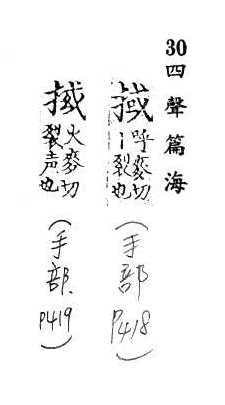 30 四聲篇海
掝
呼麥切
丨裂也
(手部
P418)
火麥切
裂声也
(手部.
P419)